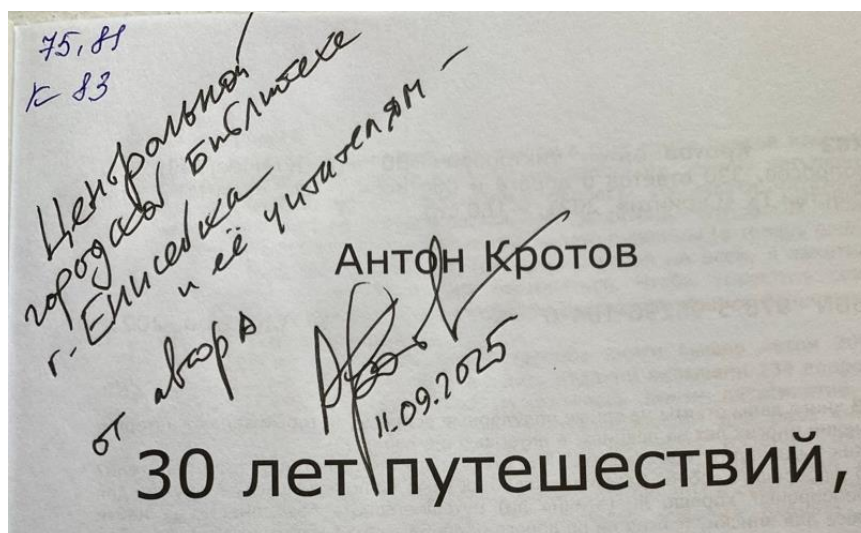 75,81
К 83
Центральной
городской Библиотеке
г. Енисейска
и её читателям -
от автора
Антон Кротов
11.09.2025
30 лет путешествий,